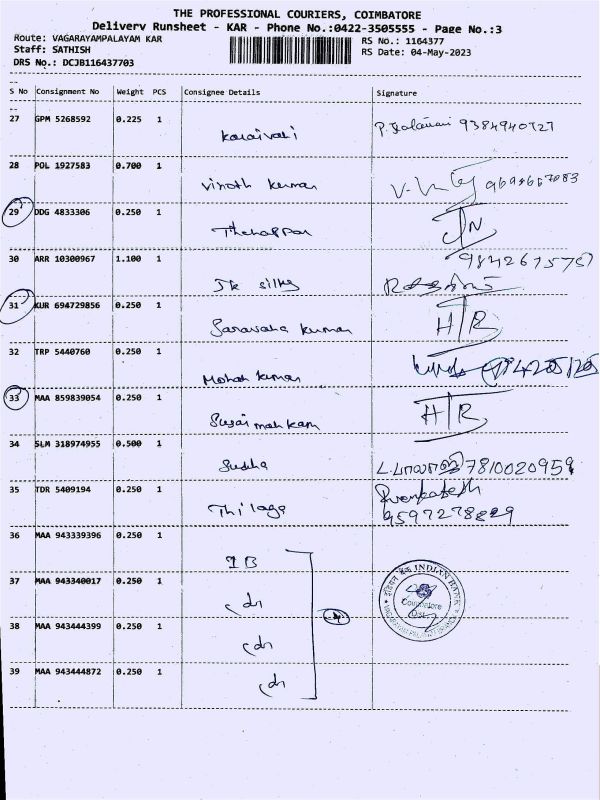 THE PROFESSIONAL COURIERS, COIMBATORE
Delivery Runsheet - KAR - Phone No.:0422-3505555 - Page No.:3
Route: VAGARAYAMPALAYAM KAR
RS No.: 1164377
Staff: SATHISH
RS Date: 04-May-2023
DRS No.: DCJB116437703
S No Consignment No Weight PCS Consignee Details Signature
27 GPM 5268592 0.225 1
Kalaivani 9384940727
28 POL 1927583 0.700 1
Vinoth kumar
29 DDG 4833306 0.250 1
30 ARR 10300967 1.100 1
Jk silks
31 KUR 694729856 0.250 1
Saravana kumar
32 TRP 5440760 0.250 1
Mohan kumar
33 MAA 859839054 0.250 1
34 SLM 318974955 0.500 1
Sudha 7810020959
35 TDR 5409194 0.250 1
Thilaga
9597278829
36 MAA 943339396 0.250 1
IB
37 MAA 943340017 0.250 1
INDIAN BANK
Coimbatore
38 MAA 943444399 0.250 1
39 MAA 943444872 0.250 1